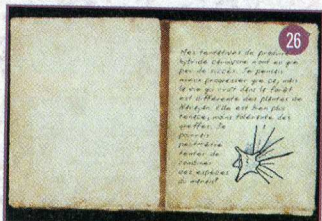 26
Mes tentatives de produire
hybride carnivore n'ont eu que
peu de succès. Je pensais
mieux progresser que ça, mais
la vie qui croît dans la forêt
est différente des plantes de
Elle est bien plus
tenace, moins tolérante des
greffes. Je
pourrais
peut-être
tenter de
combiner
des espèces